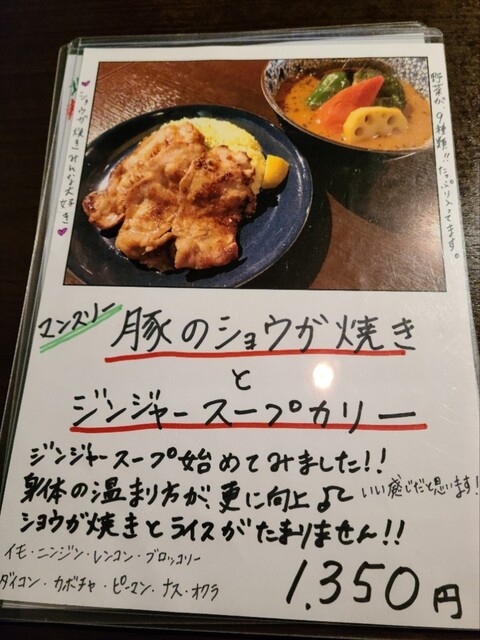 ♥ショウガ焼きみんな大好き♥
野菜が、9種類!!たっぷり入ってます。
マンスリー
豚のショウガ焼き
と
ジンジャースープカリー
ジンジャースープ始めてみました!!
身体の温まり方が、更に向上♪
いい感じだと思います!
ショウガ焼きとライスがたまりません!!
イモ・ニンジン・レンコン・ブロッコリー
ダイコン・カボチャ・ピーマン・ナス・オクラ
1,350円